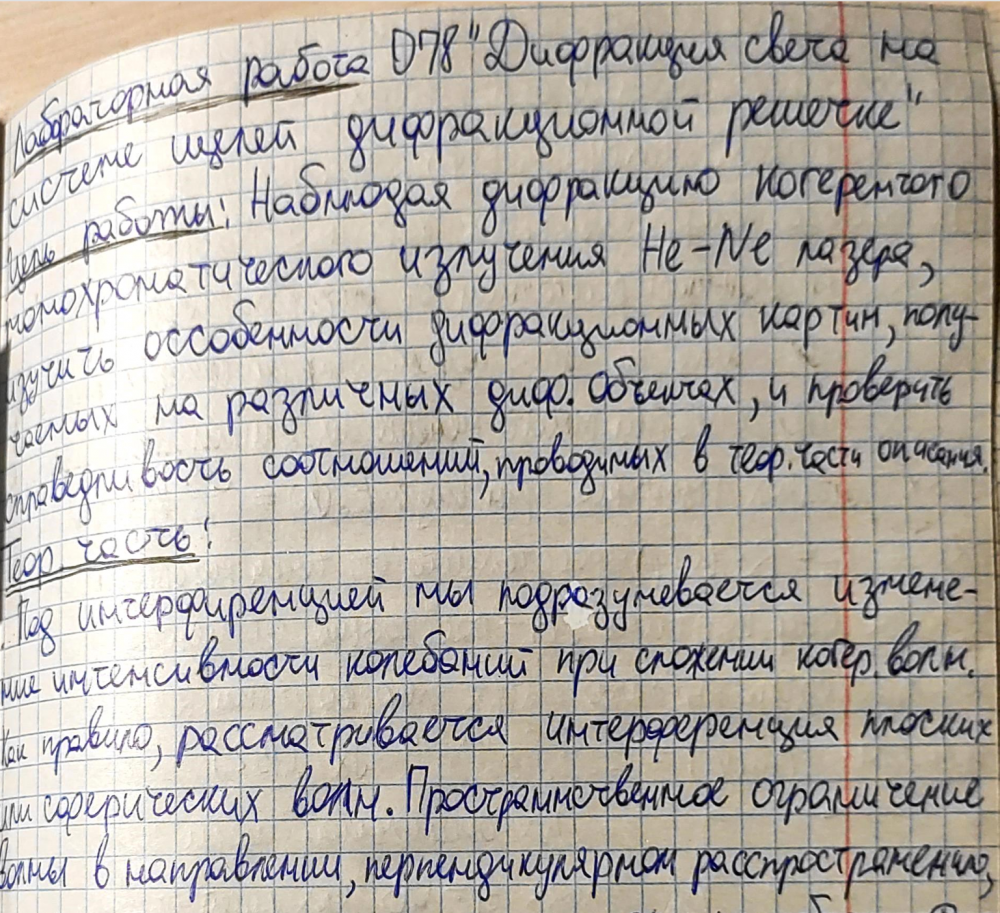 Лабораторная работа О78 "Дифракция света на
системе щелей дифракционной решетке"
Цель работы: Наблюдая дифракцию когерентого
монохроматического излучения He-Ne лазера,
изучить оссобенности дифракционных картин, полу-
чаемых на различных диф. объектах, и проверить
справедливость соотношений, проводимых в теор. части описания.
Теор. часть:
Под интерфиренцией мы подразумевается измене-
ние интенсивности колебаний при сложении когер. волн.
Как правило, рассматривается интерференция плоских
или сферических волн. Пространственное ограничение
волны в направлении, перпендикулярном расспространению,